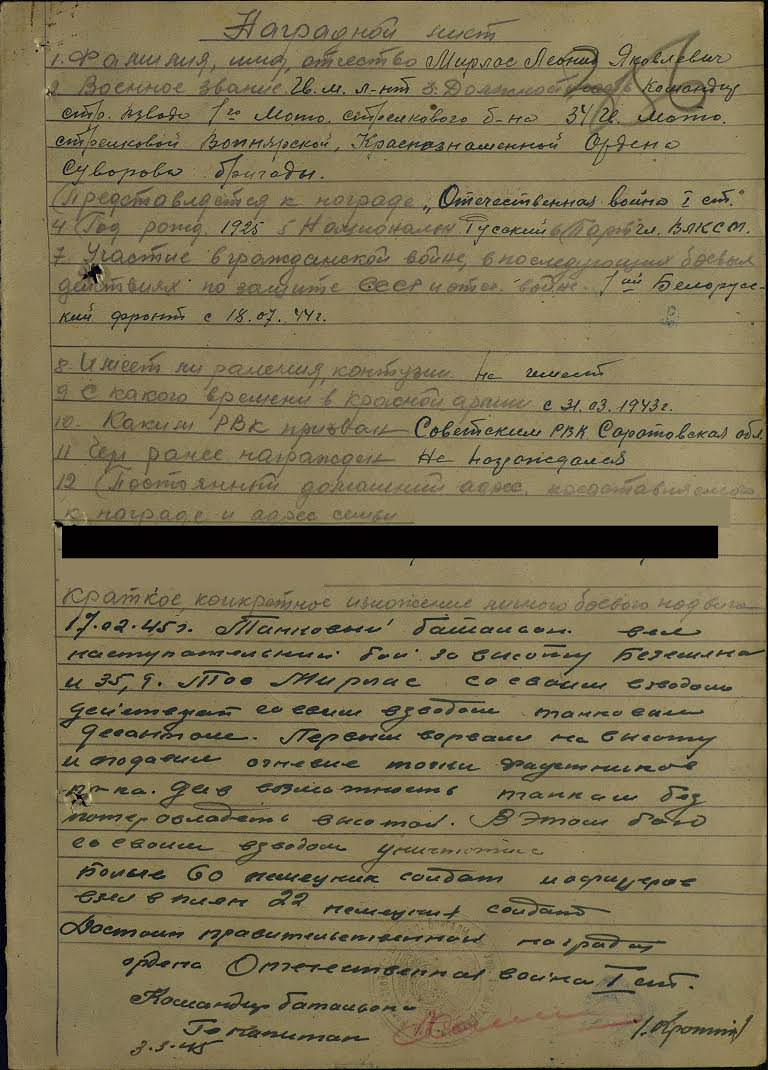 Наградной лист
1. Фамилия, имя, отчество Мирлас Леонид Яковлевич
2. Военное звание Гв. м. л-нт 3. Должность Командир
стр. взвода 1го Мото. стрелкового б-на 34 Гв. Мото.
стрелковой Вапнярской, Краснознаменной Ордена
Суворова бригады.
Представляется к награде „Отечественная война I ст."
4 Год рожд. 1925 5 Национальн Русский 6 Парт чл. ВЛКСМ.
7. Участие в гражданской войне, в последующих боевых
действиях по защите СССР и отеч. войне. 1ый Белорус-
кий фронт с 18.07.44г.
8. Имеет ли ранения, контузии не имеет
9 С какого времени в красной армии с 31.03.1943г.
10. Каким РВК призван Советским РВК Саратовская обл.
11 Чем ранее награжден Не награждался
12 Постоянный домашний адрес. представляемого
к награде и адрес семьи
Краткое, конкретное изложение личного боевого подвига
17.02.45г. Танковый батальон вел
наступательный бой за высоту
и 35,9. Тов Мирлас со своим взводом
действует со своим взводом танковым
десантом. Первым ворвался на высоту
и подавил огневые точки
пр-ка. Дав возможность танкам без
потерь овладеть высотой. В этом бою
со своим взводом уничтожил
более 60 немецких солдат и офицеров
взял в плен 22 немецких солдат
Достоин правительственной награды
ордена Отечественная война I ст.
Командир батальона
Гв капитан
3-3-45